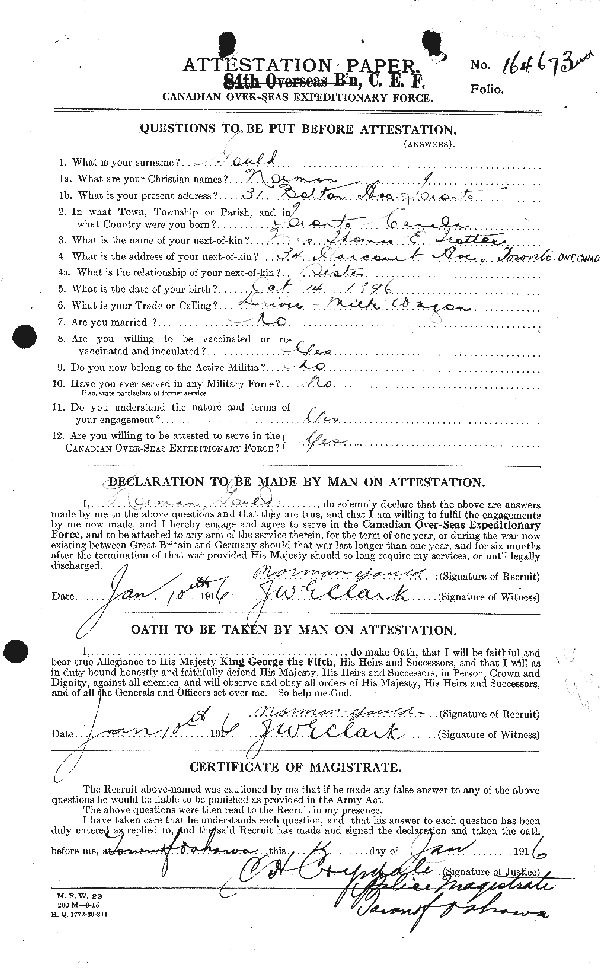 ATTESTATION PAPER.
No. 164673
84th Overseas B'n, C. E. F.
Folio.
CANADIAN OVER-SEAS EXPEDITIONARY FORCE.
QUESTIONS TO BE PUT BEFORE ATTESTATION.
(ANSWERS)
1. What is your surname? Gauld
1a. What are your Christian names? Norman
1b. What is your present address? 31 Bolton Ave, Toronto
2. In what Town, Township or Parish, and in
what Country were you born? Toronto - Canada
3. What is the name of your next-of-kin? Mrs
4. What is the address of your next-of-kin? Ave, Toronto ONT, CANADA
4a. What is the relationship of your next-of-kin? Sister
5. What is the date of your birth? Oct 14 1896
6. What is your Trade or Calling? Driver - Milk Wagon
7. Are you married? No
8. Are you willing to be vaccinated or re-
vaccinated and inoculated? Yes
9. Do you now belong to the Active Militia? No
10. Have you ever served in any Military Force? No
If so, state particulars of former service
11. Do you understand the nature and terms of
your engagement? Yes
12. Are you willing to be attested to serve in the
CANADIAN OVER-SEAS EXPEDITIONARY FORCE? Yes
DECLARATION TO BE MADE BY MAN ON ATTESTATION.
I, Norman Gauld, do solemnly declare that the above are answers
made by me to the above questions and that they are true, and that I am willing to fulfil the engagements
by me now made, and I hereby engage and agree to serve in the Canadian Over-Seas Expeditionary
Force, and to be attached to any arm of the service therein, for the term of one year, or during the war now
existing between Great Britain and Germany should that war last longer than one year, and for six months
after the termination of that war provided His Majesty should so long require my services, or until legally
discharged.
Norman Gauld (Signature of Recruit)
Date Jan 10th 1916 J W E Clark (Signature of Witness)
OATH TO BE TAKEN BY MAN ON ATTESTATION.
I, do make Oath, that I will be faithful and
bear true Allegiance to His Majesty King George the Fifth, His Heirs and Successors, and that I will as
in duty bound honestly and faithfully defend His Majesty, His Heirs and Successors, in Person, Crown and
Dignity, against all enemies, and will observe and obey all orders of His Majesty, His Heirs and Successors,
and of all the Generals and Officers set over me. So help me God.
Norman Gauld (Signature of Recruit)
Date Jan 10th 1916 J W E Clark (Signature of Witness)
CERTIFICATE OF MAGISTRATE.
The Recruit above-named was cautioned by me that if he made any false answer to any of the above
questions he would be liable to be punished as provided in the Army Act.
The above questions were then read to the Recruit in my presence.
I have taken care that he understands each question, and that his answer to each question has been
duly entered as replied to, and the said Recruit has made and signed the declaration and taken the oath
before me, at Town of Oshawa this day of Jan 1916
(Signature of Justice)
Police Magistrate
Town of Oshawa
M. F. W. 23
200 M-9-15
H. Q. 1772-39-241